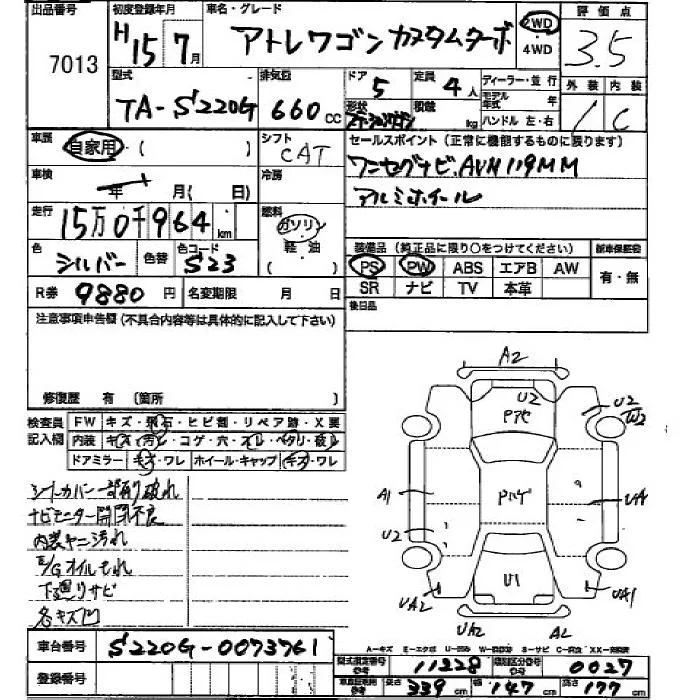 出品番号 7013
初度登録年月 H15年7月
車名・グレード アトレワゴン カスタムターボ
2WD
4WD
評価点 3.5
型式 TA-S220G
排気量 660 cc
ドア 5
定員 4人
ディーラー・並行
モデル年式 年
形状 ステーションワゴン
積載 kg
ハンドル 左・右
外装 内装
1 C
車歴 自家用・( )
シフト CAT
セールスポイント (正常に機能するものに限ります)
ワンセグナビ.AVN119MM
アルミホイール
車検 年 月( 日)
冷房
走行 15万0千964 km
燃料 ガソリン
軽油
( )
色 シルバー 色替
色コード S23
装備品 (純正品に限り○をつけてください)
新車保証書
PS PW ABS エアB AW
SR ナビ TV 本革
有・無
R券 9880円
名変期限 月 日
後日品
注意事項申告欄(不具合内容等は具体的に記入して下さい)
修復歴 有 (箇所 )
検査員記入欄
FW キズ・飛石・ヒビ割・リペア跡・X要
内装 キズ・汚れ・コゲ・穴・スレ・ベタリ・破れ
ドアミラー キズ・ワレ ホイール・キャップ キズ・ワレ
シートカバー一部有り破れ
ナビモニター開閉不良
内装ヤニ汚れ
E/Gオイルもれ
下廻りサビ
各キズ凹
A2
U2
Pアセ
U2
W2
A1
Pハゲ
UA1
U2
U1
UA2
UA1
UA2
A2
A-キズ E-エクボ U-凹み W-補修跡 S-サビ C-腐食 XX-交換済
車台番号 S220G-0073761
登録番号
型式指定番号 参考 11228
類別区分番号 参考 0027
参考 長さ 339 cm
幅 147 cm
高さ 177 cm